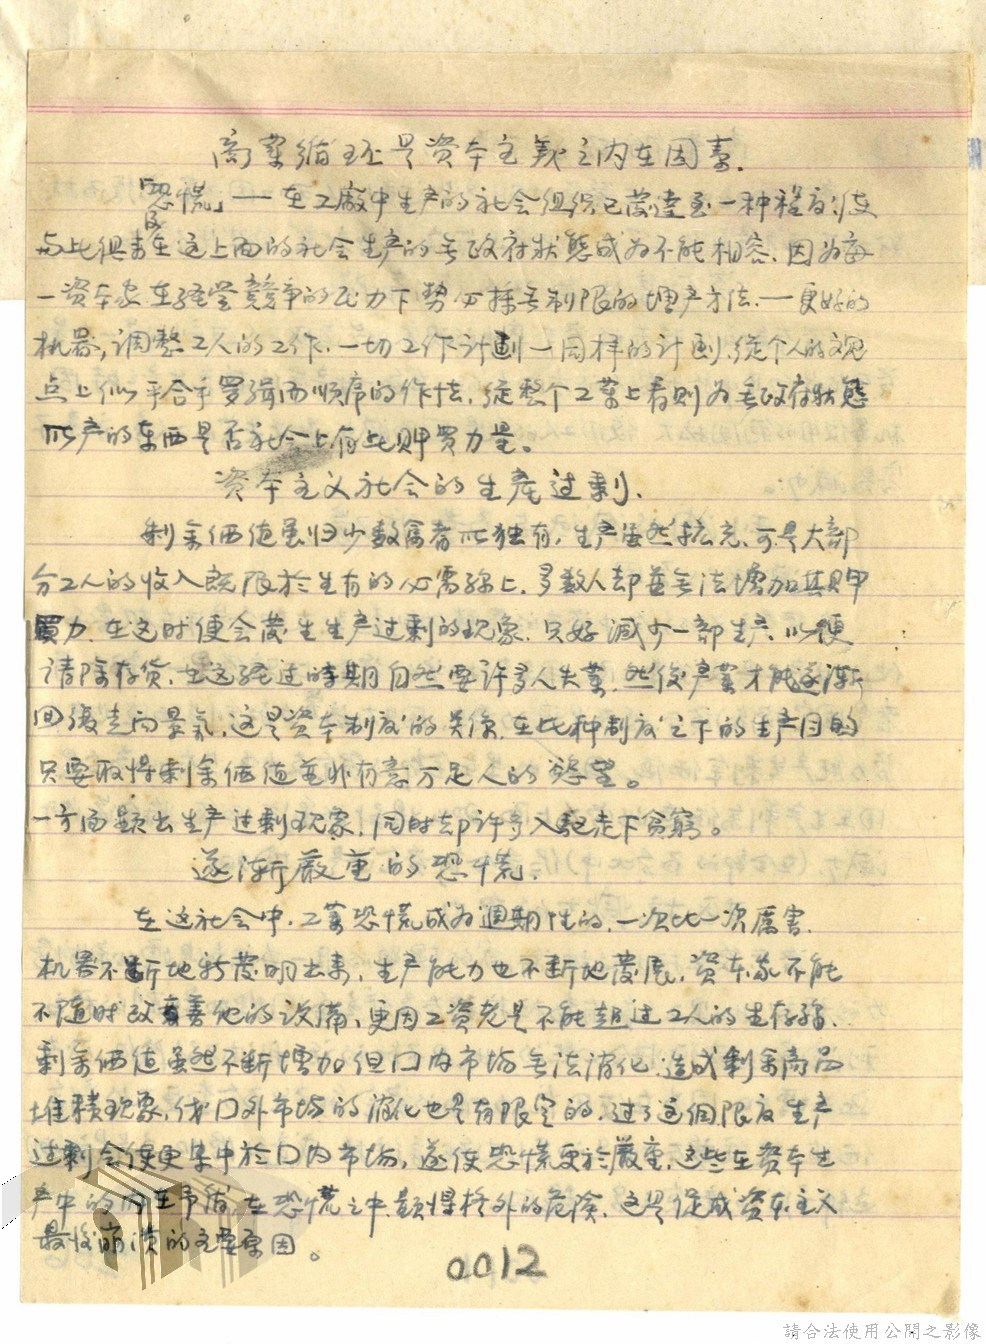 商業循环是资本主義之内在因素.
「恐慌」—在工廠中生产的社会组织已發達至一种程度,使
与此俱来在这上面的社会生产的无政府状態成为不能相容.因为每
一资本家在经营競争的压力下势必採无制限的增产方法.一更好的
机器,调整工人的工作.一切工作计劃一同样的计劃.從个人的观
点上似乎合乎罗辑而顺序的作法,從整个工業上看则为无政府状態
所产的东西是否社会上有此购買力量。
资本主义社会的生産过剩.
剩余価值虽归少数富者所独有,生产虽然扩充.可是大部
分工人的收入既限於生存的必需線上.多数人却並无法增加其购
買力.在这时便会發生生产过剩的现象.只好减少一部生产以便
清除存货.在这经过時期自然要许多人失業.然後产業才能逐漸
回復走向景氣,这是资本制度的关係.在此种制度之下的生产目的
只要取得剩余価值並非有意满足人的慾望。
一方面顯出生产过剩现象,同时却许多人趋走下贫窮。
逐渐嚴重的恐慌.
在这社会中.工業恐慌成为週期性的.一次比一次厲害.
机器不断地新發明出来,生产能力也不断地發展.资本家不能
不随时改善他的设備,更因工资老是不能超过工人的生存線.
剩余価值虽然不断增加但口内市场无法消化.造成剩余商品
堆積现象,但口外市场的消化也是有限定的.过了这個限度生产
过剩会使更集中於口内市场,遂使恐慌更於嚴重.这些在资本生
产中的内在矛盾,在恐慌之中顯得格外的危险.这是促成资本主义
最後崩溃的主要原因。
0012
請合法使用公開之影像